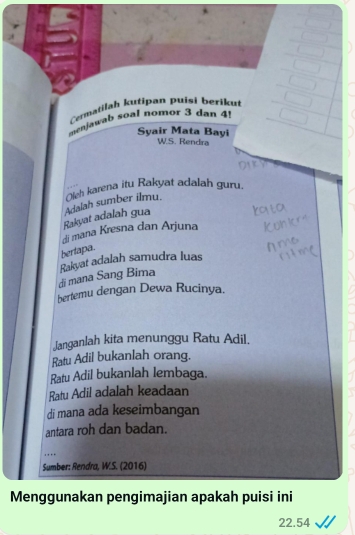 Cermatilah kutipan puisi berikut
menjawab soal nomor 3 dan 4!
Syair Mata Bayi
W.S. Rendra
....
Oleh karena itu Rakyat adalah guru.
Adalah sumber ilmu.
Rakyat adalah gua
di mana Kresna dan Arjuna
bertapa.
Rakyat adalah samudra luas
di mana Sang Bima
bertemu dengan Dewa Rucinya.
kata
konkret
rima
ritme
Janganlah kita menunggu Ratu Adil.
Ratu Adil bukanlah orang.
Ratu Adil bukanlah lembaga.
Ratu Adil adalah keadaan
di mana ada keseimbangan
antara roh dan badan.
....
Sumber: Rendra, W.S. (2016)
Menggunakan pengimajian apakah puisi ini
22.54